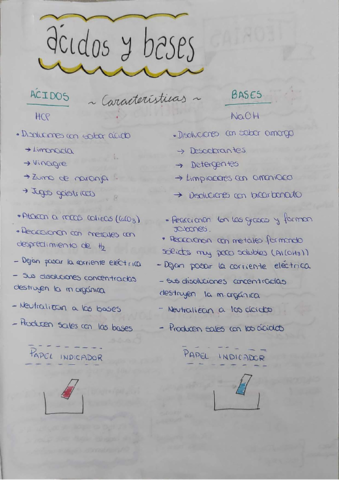 ácidos y bases
~ Características ~
ÁCIDOS
HCl
• Disoluciones con sabor ácido
→ Limonada
→ Vinagre
→ Zumo de naranja
→ Jugos gástricos
• Atacan a rocas calizas (CaCO3)
• Reaccionan con metales con
desprendimiento de H2
- Dejan pasar la corriente eléctrica
- Sus disoluciones concentradas
destruyen la m orgánica
- Neutralizan a las bases
- Producen sales con las bases
PAPEL INDICADOR
BASES
NaOH
• Disoluciones con sabor amargo
→ Desodorantes
→ Detergentes
→ Limpiadores con amoniaco
→ Disoluciones con bicarbonato
• Reaccionan con las grasas y forman
jabones.
• Reaccionan con metales formando
sólidos muy poco solubles
- Dejan pasar la corriente eléctrica
- Sus disoluciones concentradas
destruyen la m orgánica
- Neutralizan a los ácidos
- Producen sales con los ácidos
PAPEL INDICADOR